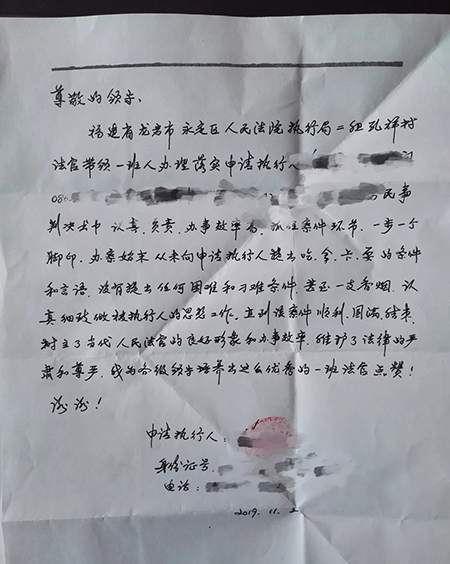 尊敬的领导、
福建省龙岩市永定区人民法院执行局二组孔祥材
法官带领一班人办理落实申请执行人
080 民事
判决书中认真、负责、办事效率高、抓住案件环节、一步一个
脚印、办案始末从来向申请执行人提出吃、拿、卡、要的条件
和言语、没有提出任何困难和刁难条件、甚至一支香烟、认
真细致做被执行人的思想工作、直到该案件顺利、圆满结束、
树立了当代人民法官的良好形象和办事效率、维护了法律的严
肃和尊严、我为各级领导培养出这么优秀的一班法官点赞！
谢谢！
申请执行人：
身份证号、
电话：
2019.11.2